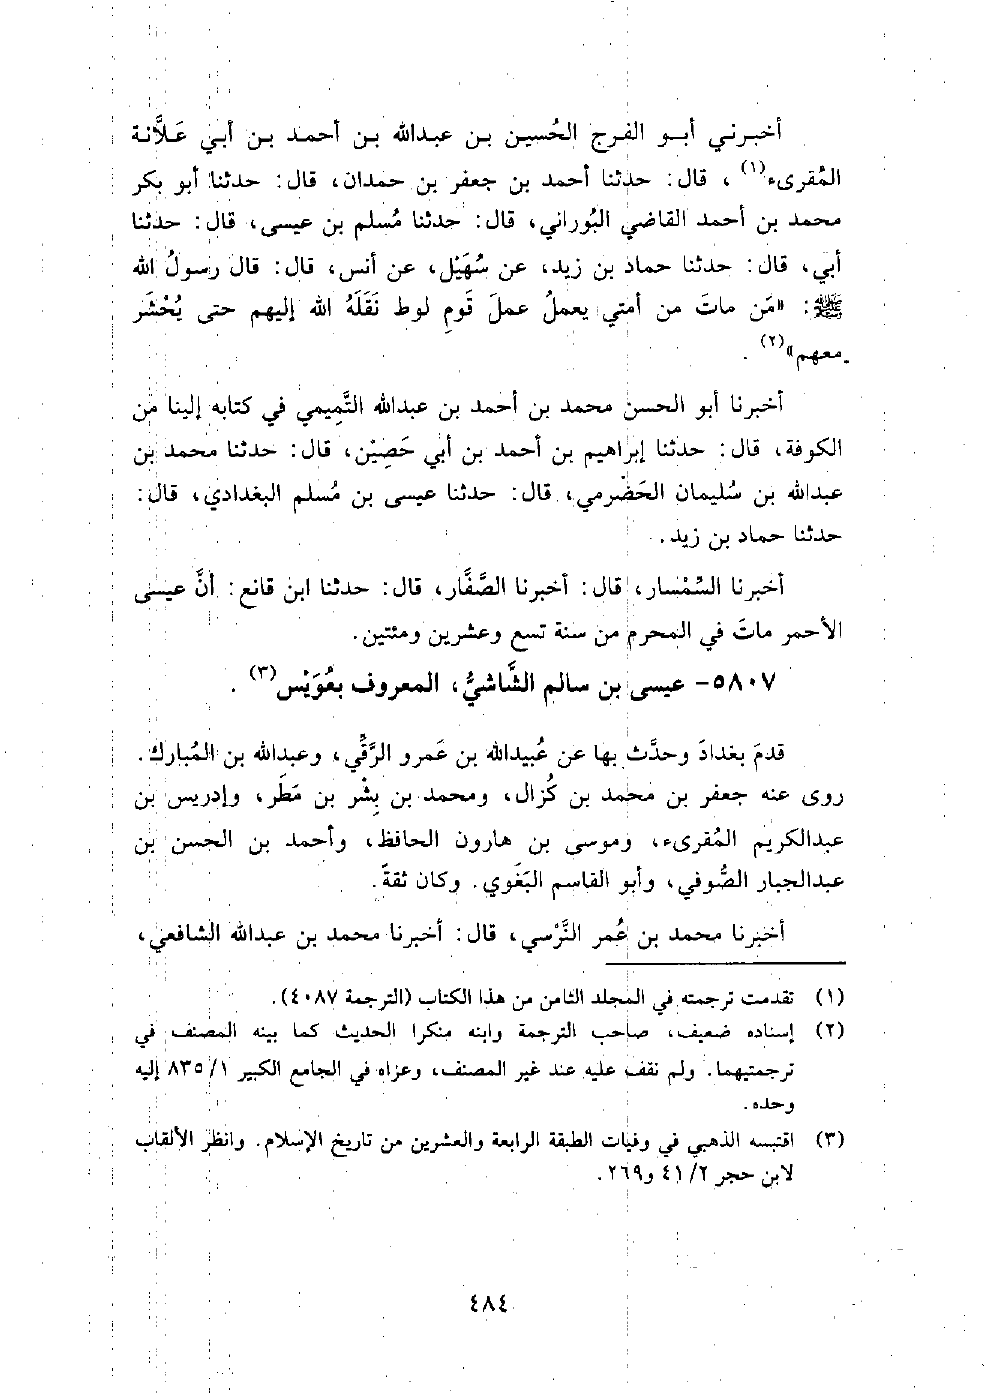 أخبرني أبو الفرج الحُسين بن عبدالله بن أحمد بن أبي عَلَّانة
المُقرىء(١)، قال: حدثنا أحمد بن جعفر بن حمدان، قال: حدثنا أبو بكر
محمد بن أحمد القاضي البُوراني، قال: حدثنا مُسلم بن عيسى، قال: حدثنا
أبي، قال: حدثنا حماد بن زيد، عن سُهَيْل، عن أنس، قال: قال رسولُ الله
ﷺ: «مَن ماتَ من أمتي يعملُ عملَ قَومِ لوط نَقَلَهُ الله إليهم حتى يُحْشَر
معهم»(٢).
أخبرنا أبو الحسن محمد بن أحمد بن عبدالله التَّمِيمي في كتابه إلينا من
الكوفة، قال: حدثنا إبراهيم بن أحمد بن أبي حَصِيْن، قال: حدثنا محمد بن
عبدالله بن سُليمان الحَضْرمي، قال: حدثنا عيسى بن مُسلم البغدادي، قال:
حدثنا حماد بن زيد.
أخبرنا السِّمْسار، قال: أخبرنا الصَّفَّار، قال: حدثنا ابن قانع: أنَّ عيسى
الأحمر ماتَ في المحرم من سنة تسع وعشرين ومئتين.
٥٨٠٧- عيسى بن سالم الشَّاشيُّ، المعروف بعُوَيْس(٣).
قدمَ بغدادَ وحدَّث بها عن عُبيدالله بن عَمرو الرَّقِّي، وعبدالله بن المُبارك.
روى عنه جعفر بن محمد بن كُزال، ومحمد بن بِشْر بن مَطَر، وإدريس بن
عبدالكريم المُقرىء، وموسى بن هارون الحافظ، وأحمد بن الحسن بن
عبدالجبار الصُّوفي، وأبو القاسم البَغَوي. وكان ثقةً.
أخبرنا محمد بن عُمر النَّرْسي، قال: أخبرنا محمد بن عبدالله الشافعي،
(١) تقدمت ترجمته في المجلد الثامن من هذا الكتاب (الترجمة ٤٠٨٧).
(٢) إسناده ضعيف، صاحب الترجمة وابنه منكرا الحديث كما بينه المصنف في
ترجمتيهما. ولم نقف عليه عند غير المصنف، وعزاه في الجامع الكبير ١/ ٨٣٥ إليه
وحده.
(٣) اقتبسه الذهبي في وفيات الطبقة الرابعة والعشرين من تاريخ الإسلام. وانظر الألقاب
لابن حجر ٢/ ٤١ و٢٦٩.
٤٨٤